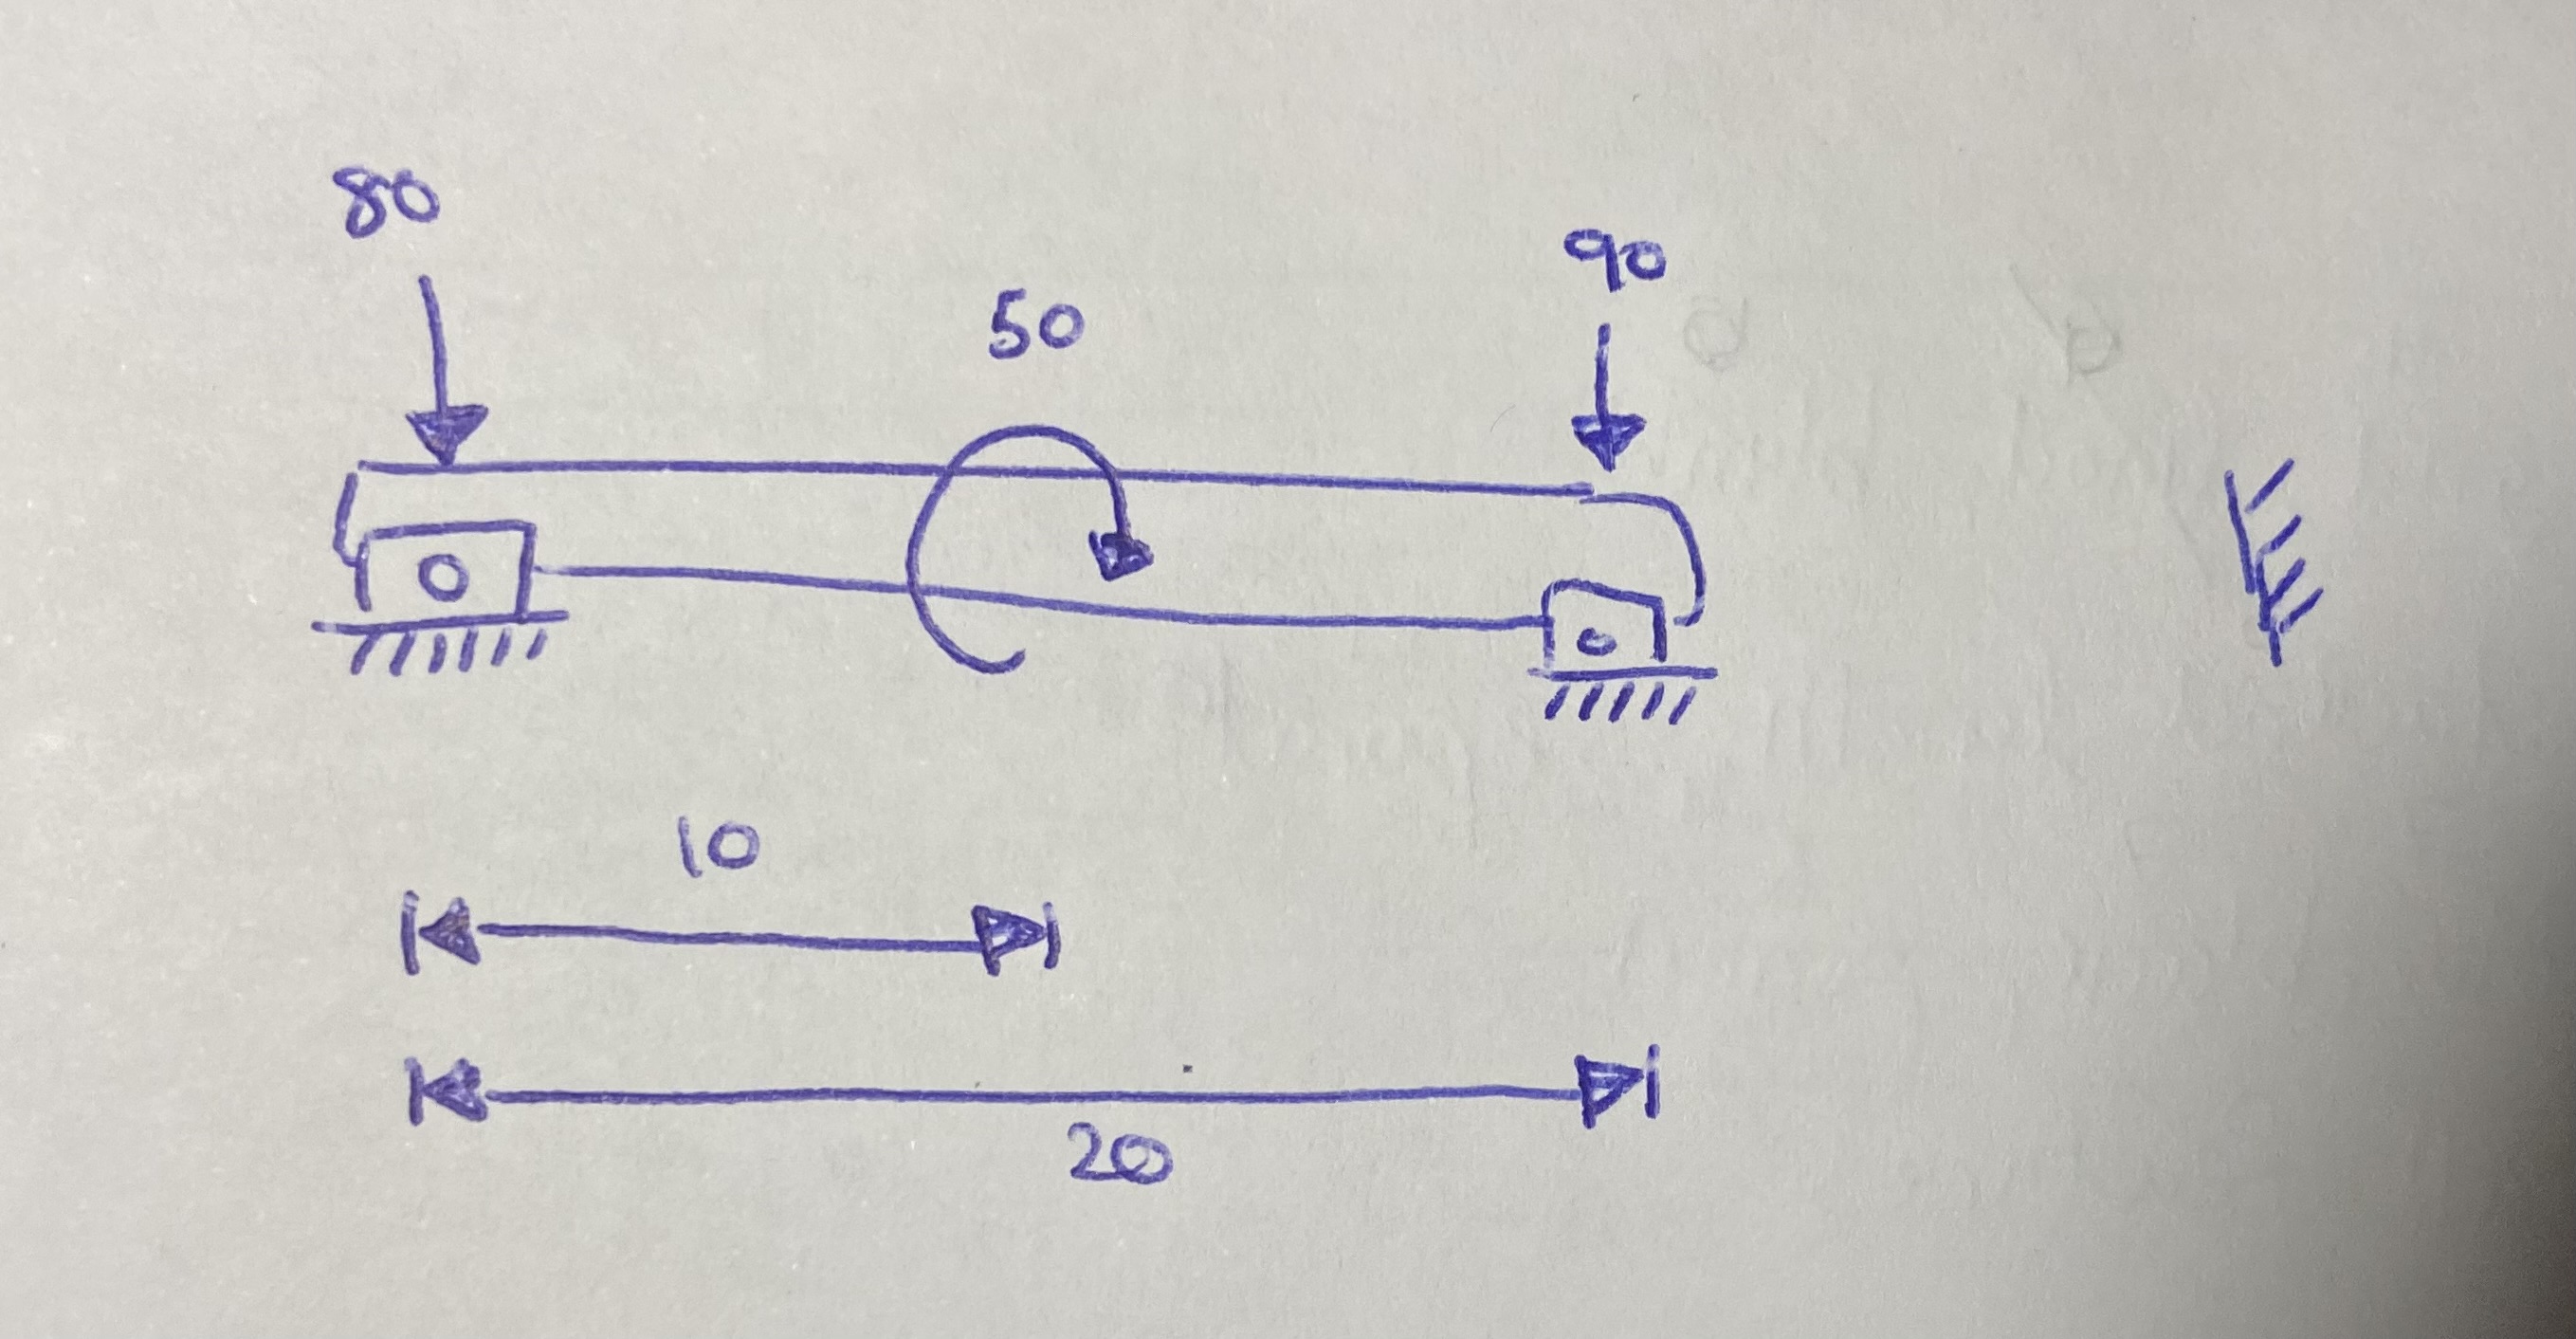 80
90
50
10
20